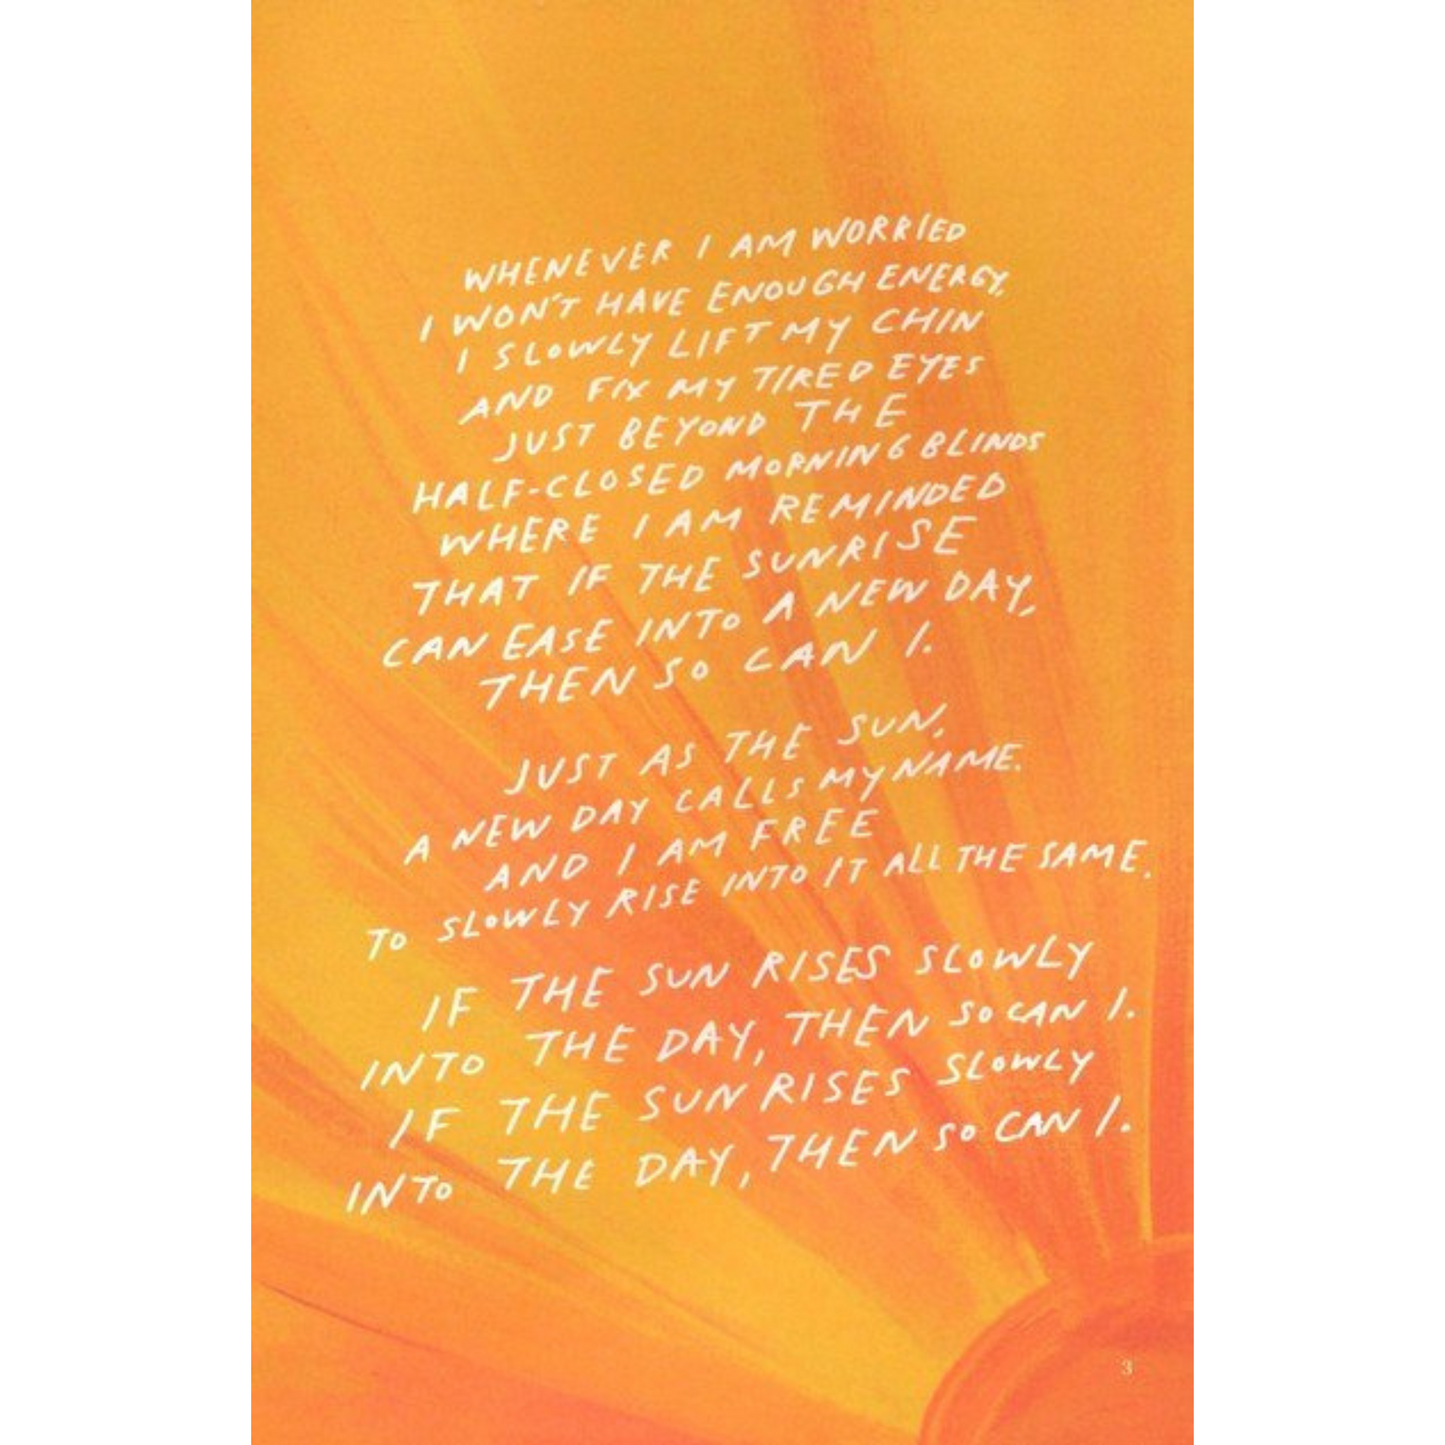 WHENEVER I AM WORRIED
I WON'T HAVE ENOUGH ENERGY,
I SLOWLY LIFT MY CHIN
AND FIX MY TIRED EYES
JUST BEYOND THE
HALF-CLOSED MORNING BLINDS
WHERE I AM REMINDED
THAT IF THE SUNRISE
CAN EASE INTO A NEW DAY,
THEN SO CAN I.
JUST AS THE SUN,
A NEW DAY CALLS MY NAME.
AND I AM FREE
TO SLOWLY RISE INTO IT ALL THE SAME.
IF THE SUN RISES SLOWLY
INTO THE DAY, THEN SO CAN I.
IF THE SUN RISES SLOWLY
INTO THE DAY, THEN SO CAN I.
3